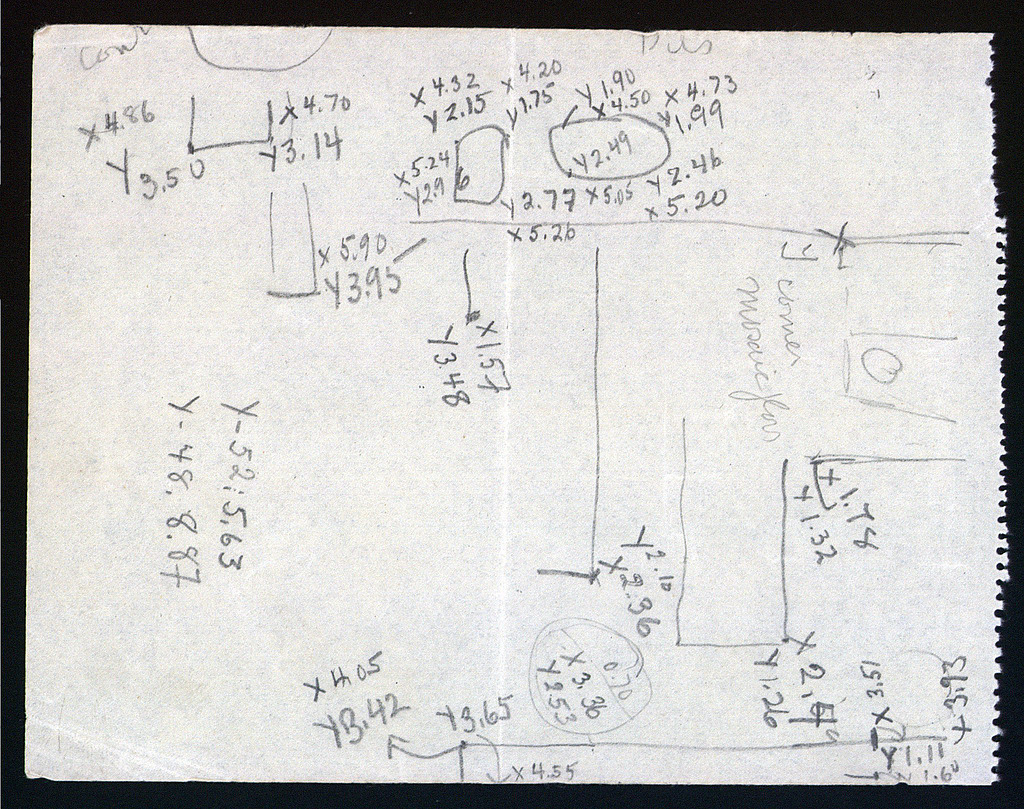 x 4.86
y 3.50
x 4.70
y 3.14
x 4.32
y 2.15
x 4.20
y 1.75
y 1.90
x 4.50
x 4.73
y 1.99
x 5.24
y 2.96
y 2.49
y 2.77
x 5.26
x 5.05
y 2.46
x 5.20
x 5.90
y 3.95
x 1.57
y 3.48
corner
x-52:5.63
y-48.8.87
x 1.32
y 2.10
x 2.36
0.70
x 3.36
y 2.53
y 1.26
x 3.51
x 3.93
y 1.11
x 4.05
y 3.42
y 3.65
x 4.55